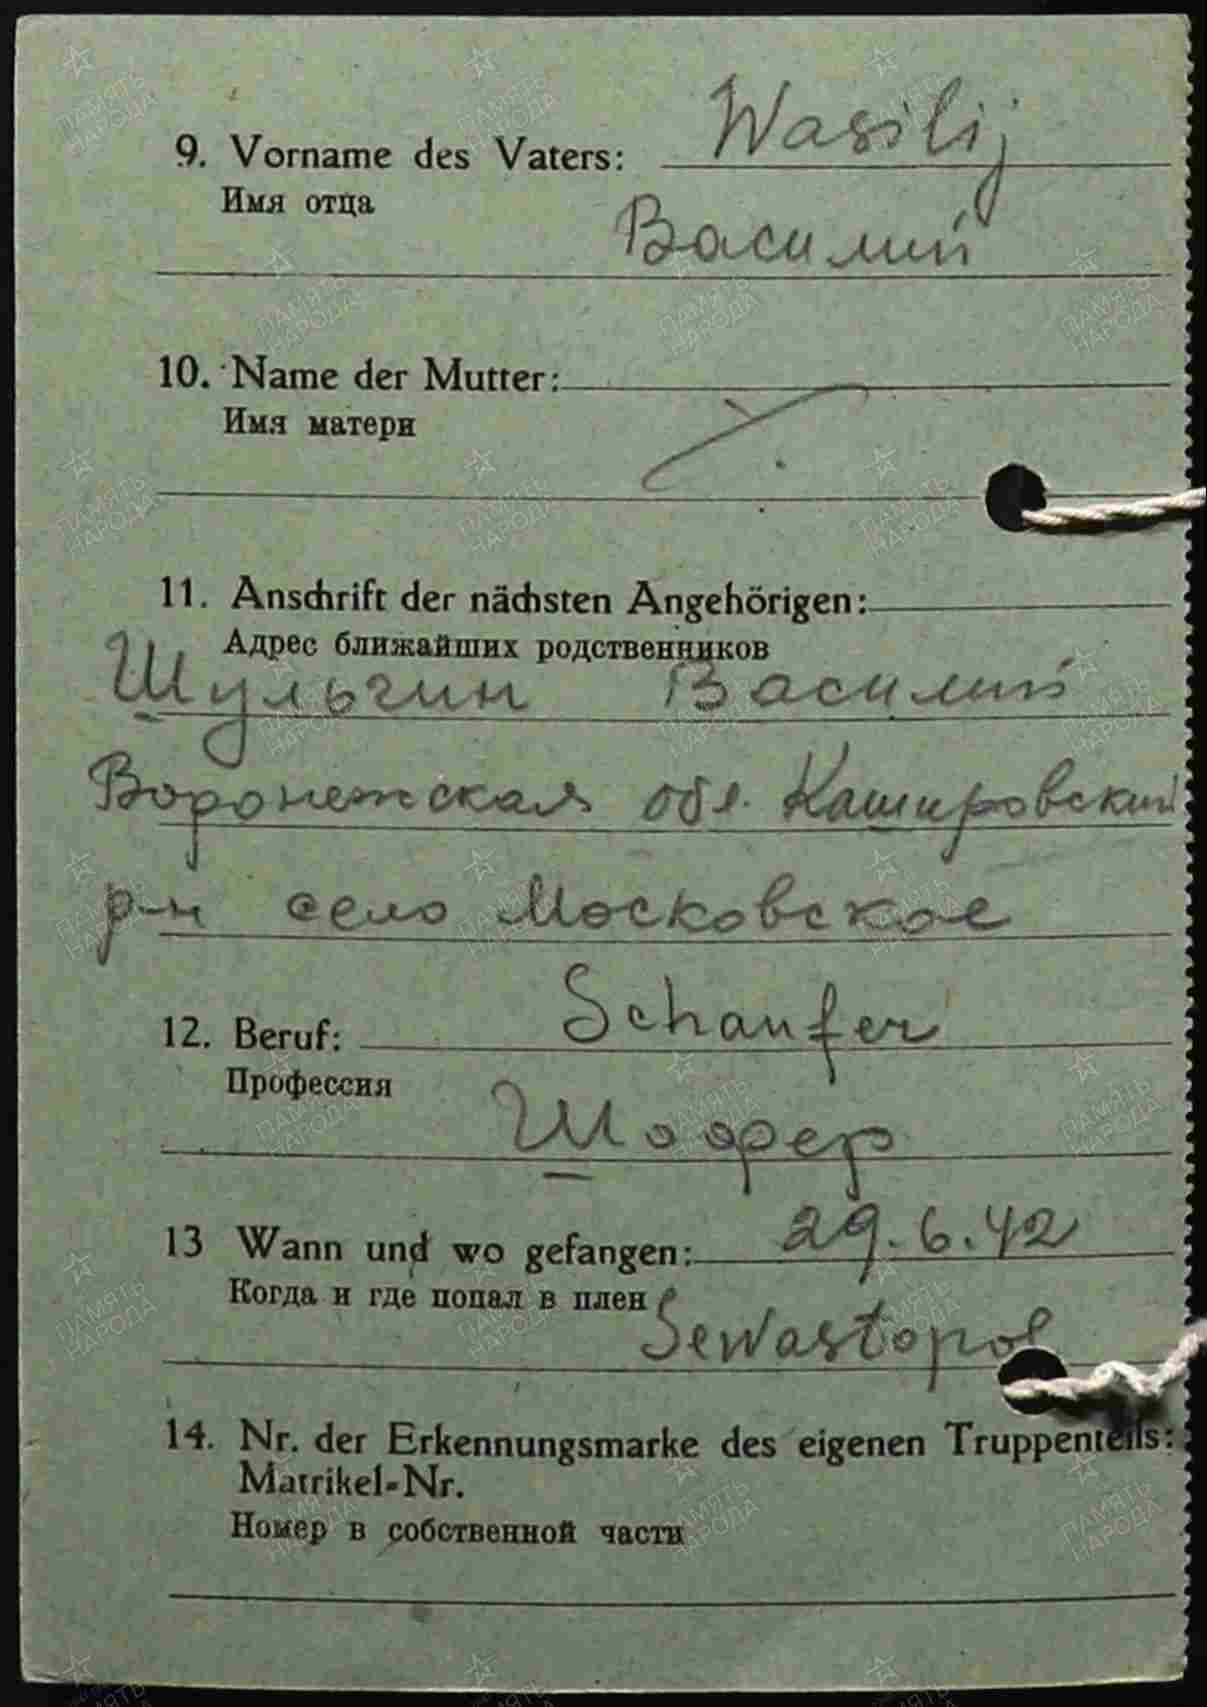 9. Vorname des Vaters: Wasilij
Имя отца
Василий
10. Name der Mutter:
Имя матери
11. Anschrift der nächsten Angehörigen:
Адрес ближайших родственников
Шульгин Василий
Воронежская обл. Кашировский
р-н село Московское
12. Beruf: Schaufer
Профессия
Шофер
13 Wann und wo gefangen: 29.6.42
Когда и где попал в плен
Sewastopol
14. Nr. der Erkennungsmarke des eigenen Truppenteils:
Matrikel-Nr.
Номер в собственной части
ПАМЯТЬ
НАРОДА